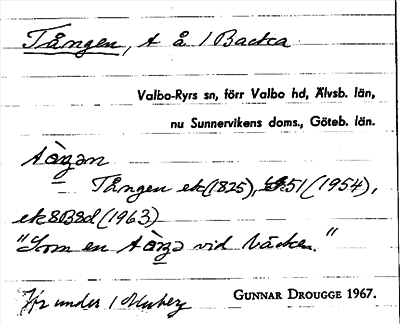 Tången, t å / Backa
Valbo-Ryrs sn, förr Valbo hd, Älvsb. län,
nu Sunnervikens doms., Göteb. län.
Tången ek (1825), 51 (1954),
ek 8B8d (1963)
"Som en vid bäcken."
Hör under /
GUNNAR DROUGGE 1967.